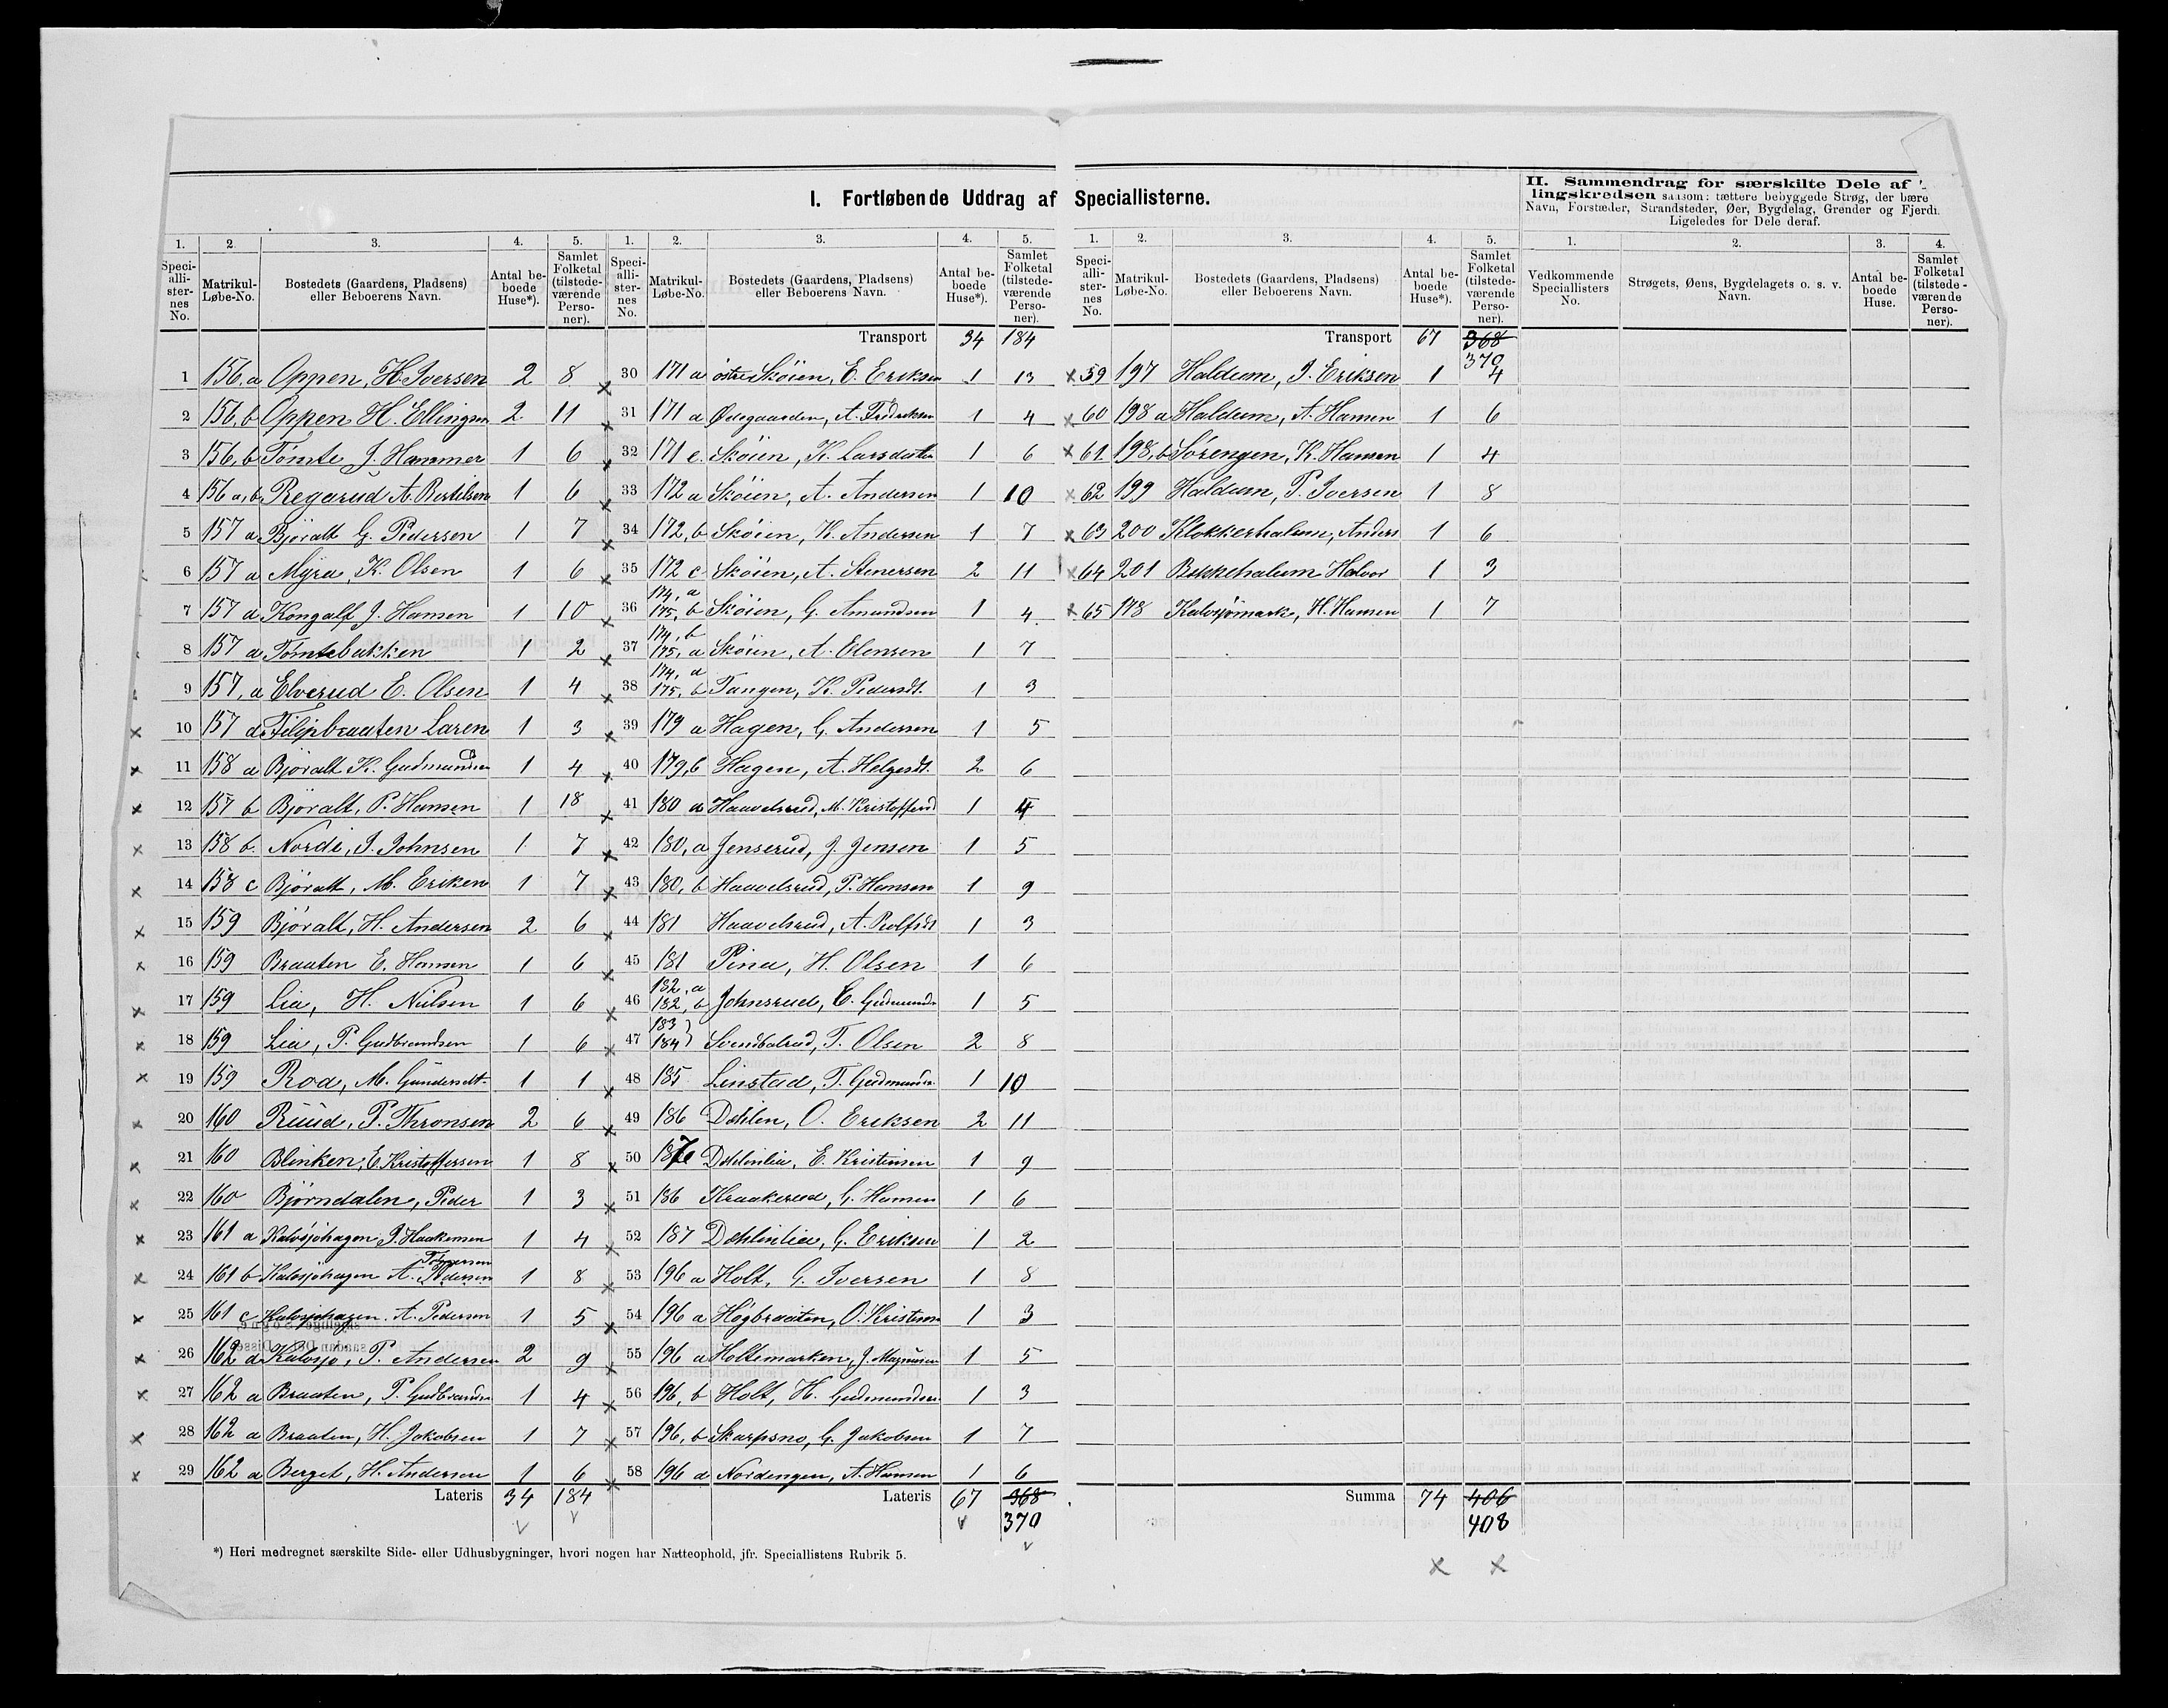 I. Fortløbende Uddrag af Speciallisterne.
II. Sammendrag for særskilte Dele af
lingskredsen saasom: tættere bebyggede Strøg, der bære
Navn, Forstæder, Strandsteder, Øer, Bygdelag, Grender og Fjerdi
Ligeledes for Dele deraf.
1. 2. 3. 4. 5.
Specialli-ster-nes No. Matrikul-Løbe-No. Bostedets (Gaardens, Pladsens) eller Beboerens Navn. Antal be-boede Huse*). Samlet Folketal (tilstede-værende Perso-ner).
1 156, a Oppen, H. Iversen 2 8
2 156, b Oppen H. Ellingsen 2 11
3 156, b Tømte J. Hammer 1 6
4 156 a, b Regarud A. Bertelsen 1 6
5 157 a Björalt G. Pedersen 1 7
6 157 a Myra, K. Olsen 1 6
7 157 a Kongalf J. Hansen 1 10
8 157 a Tømtebakken 1 2
9 157, a Elverud E. Olsen 1 4
10 157 a Filipbraaten Laren 1 3
11 158 a Bjøralt K. Gudmundsen 1 4
12 157 b Bjøralt, P. Hansen 1 18
13 158 b. Nordi, J. Johnsen 1 7
14 158 c Bjøralt, M. Eriken 1 7
15 159 Bjøralt, H. Andersen 2 6
16 159 Braaten E. Hansen 1 6
17 159 Lia, H. Nilsen 1 6
18 159 Lia, P. Gudbrandsen 1 6
19 159 Roa, M. Gundersdt. 1 1
20 160 Ruud, P. Thronsen 2 6
21 160 Blinken, E. Kristoffersen 1 8
22 160 Bjørndalen, Peder 1 3
23 161 a Kalvsjøhagen, P. Haakensen 1 4
24 161 b Kalvsjøhagen A. Pedersen 1 8
25 161 c Kalvsjøhagen. A. Pedersen 1 5
26 162 a Kalvsjø, P. Andersen 2 9
27 162 a Braaten, P. Gudbrands 1 4
28 162 a Braaten, H. Jakobsen 1 7
29 162 a Berget, H. Andersen 1 6
Lateris 34 184
1. 2. 3. 4. 5.
Specialli-ster-nes No. Matrikul-Løbe-No. Bostedets (Gaardens, Pladsens) eller Beboerens Navn. Antal be-boede Huse*). Samlet Folketal (tilstede-værende Perso-ner).
Transport 34 184
30 171 a östre Skóien, E. Eriksen 1 13
31 171 a Ødegaarden, A. Fredriksen 1 4
32 171 c. Skóien, K. Larsdatter 1 6
33 172 a Skóien, A. Andersen 1 10
34 172, b Skóien, K. Andersen 1 7
35 172 c Skóien, A. Stenersen 2 11
36 174, a 175, b Skóien, G. Amundsen 1 4
37 174, b 175, a Skóien, A. Elensen 1 7
38 174, a 175, b Tangen, K. Pedersdt. 1 3
39 179 a Hagen, G. Andersen 1 5
40 179, b Hagen, A. Helgesdt. 2 6
41 180 a Haavelsrud, M. Kristoffersd 1 4
42 180, a Jenserud, J. Jensen 1 5
43 180, b Haavelsrud, P. Hansen 1 9
44 181 Haavelsrud, A. Rolfsdt 1 3
45 181 Pina, H. Olsen 1 6
46 182, a 182, b Johnsrud, E. Gudmunds 1 5
47 183) 184) Svendbalrud, T. Olsen 2 8
48 185 Linstad, T. Gudmunds 1 10
49 186 Dæhlen, O. Eriksen 2 11
50 187 Dæhlinlia, E. Kristiansen 1 9
51 186 Kraakerud, G. Hansen 1 6
52 187 Dæhlinlia, G. Eriksen 1 2
53 196 a Holt, G. Iversen 1 8
54 196 a Høgbraaten, O. Kristians 1 3
55 196 a Holtemarken, J. Magnusen 1 5
56 196, b Holt, H. Gudmundsen 1 3
57 196, b Skarpsno, G. Jakobsen 1 7
58 196 a Nordengen, A. Hansen 1 6
Lateris 67 368
370
1. 2. 3. 4. 5.
Specialli-ster-nes No. Matrikul-Løbe-No. Bostedets (Gaardens, Pladsens) eller Beboerens Navn. Antal be-boede Huse*). Samlet Folketal (tilstede-værende Perso-ner).
Transport 67 368
370
59 197 Haldum, J. Eriksen 1 4
60 198 a Haldum, A. Hansen 1 6
61 198, b Sörengen, K. Hansen 1 4
62 199 Haldum, P. Iversen 1 8
63 200 Klokkerhalum, Anders 1 6
64 201 Bakkehalum Halvor 1 3
65 178 Kalvsjømark, H. Hansen 1 7
Summa 74 406
408
1. 2. 3. 4.
Vedkommende Speciallisters No. Strøgets, Øens, Bygdelagets o. s. v. Navn. Antal be-boede Huse. Samlet Folketal (tilstede-værende Perso-ner).
*) Heri medregnet særskilte Side- eller Udhusbygninger, hvori nogen har Natteophold, jfr. Speciallistens Rubrik 5.